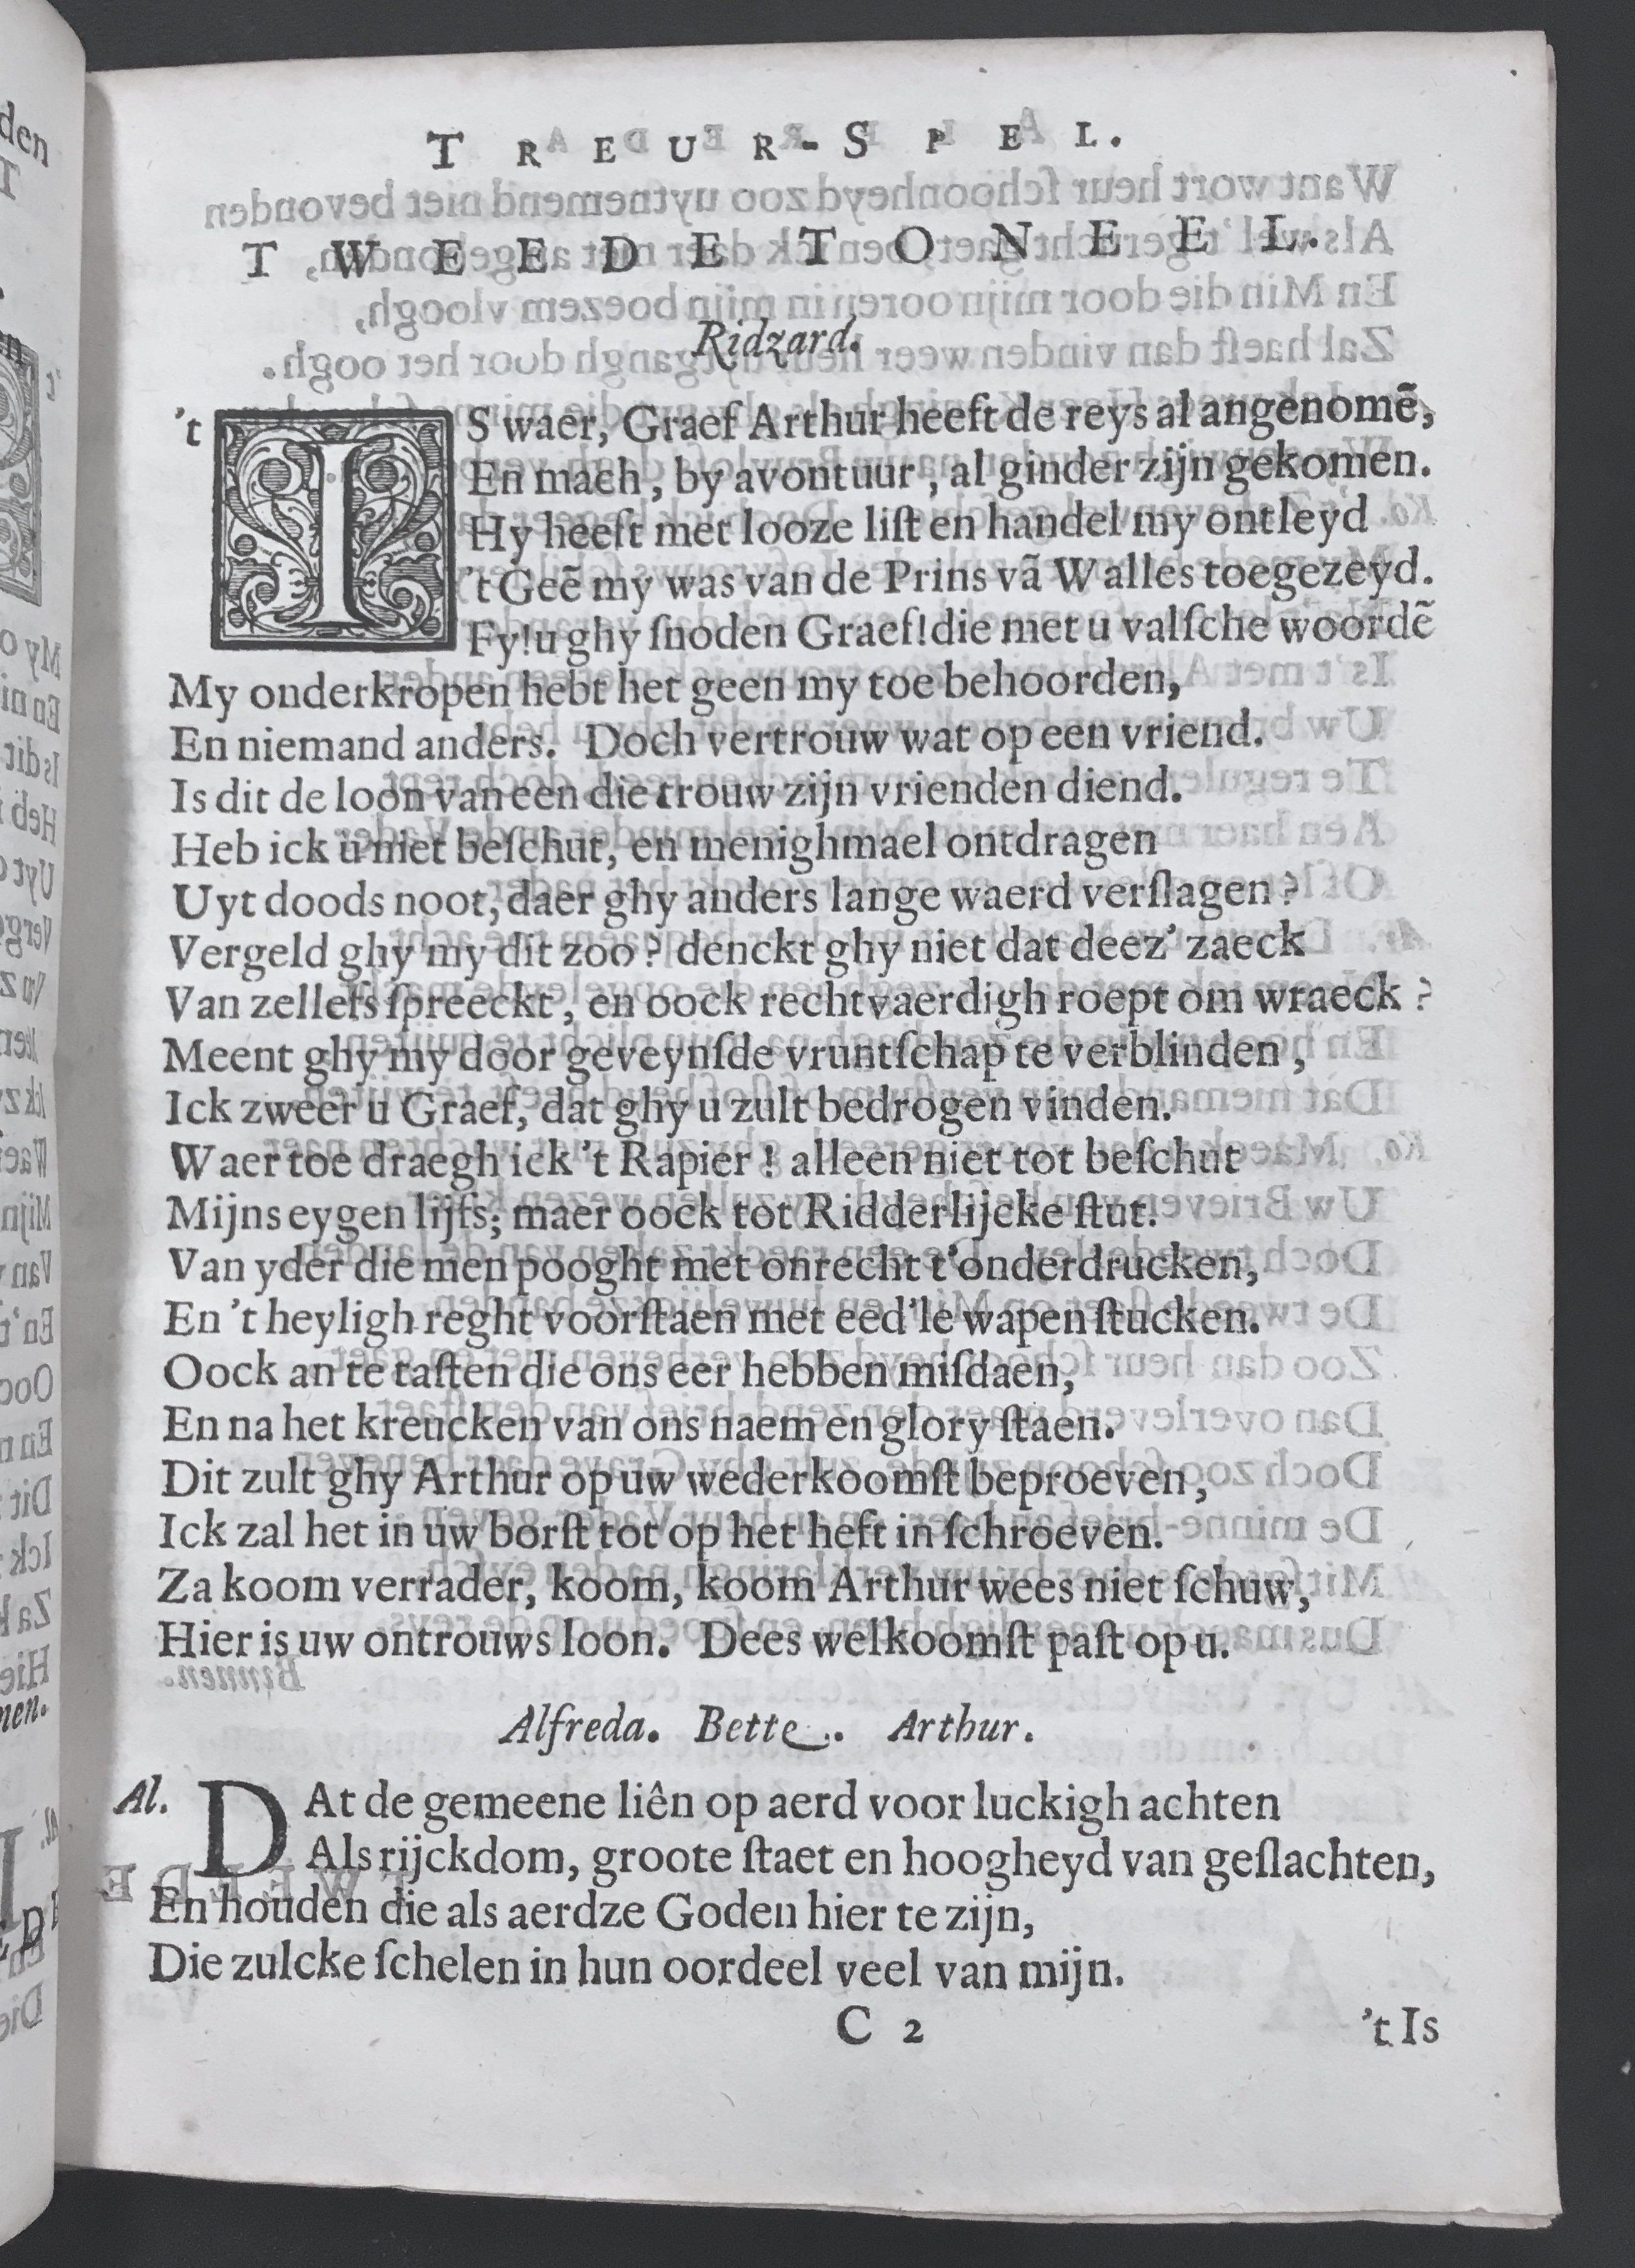 TREUR-SPEL.
TWEEDE TONEEL.
Ridzard.
'tIS waer, Graef Arthur heeft de reys al angenomẽ,
En mach, by avontuur, al ginder zijn gekomen.
Hy heeft met looze liſt en handel my ontleyd
't Geẽ my was van de Prins vã Walles toegezeyd.
Fy! u ghy ſnoden Graef! die met u valſche woordẽ
My onderkropen hebt het geen my toe behoorden,
En niemand anders. Doch vertrouw wat op een vriend.
Is dit de loon van een die trouw zijn vrienden diend.
Heb ick u niet beſchut, en menighmael ontdragen
Uyt doods noot, daer ghy anders lange waerd verſlagen?
Vergeld ghy my dit zoo? denckt ghy niet dat deez' zaeck
Van zellefs ſpreeckt, en oock rechtvaerdigh roept om wraeck?
Meent ghy my door geveynſde vruntſchap te verblinden,
Ick zweer u Graef, dat ghy u zult bedrogen vinden.
Waer toe draegh ick 't Rapier! alleen niet tot beſchut
Mijns eygen lijfs; maer oock tot Ridderlijcke ſtut.
Van yder die men pooght met onrecht t'onderdrucken,
En 't heyligh reght voorſtaen met eed'le wapen ſtucken.
Oock an te taſten die ons eer hebben miſdaen,
En na het kreucken van ons naem en glory ſtaen.
Dit zult ghy Arthur op uw wederkoomſt beproeven,
Ick zal het in uw borſt tot op het heft in ſchroeven.
Za koom verrader, koom, koom Arthur wees niet ſchuw,
Hier is uw ontrouws loon. Dees welkoomſt paſt op u.
Alfreda. Bette. Arthur.
Al. DAt de gemeene liên op aerd voor luckigh achten
Als rijckdom, groote ſtaet en hoogheyd van geſlachten,
En houden die als aerdze Goden hier te zijn,
Die zulcke ſchelen in hun oordeel veel van mijn.
C 2
't Is